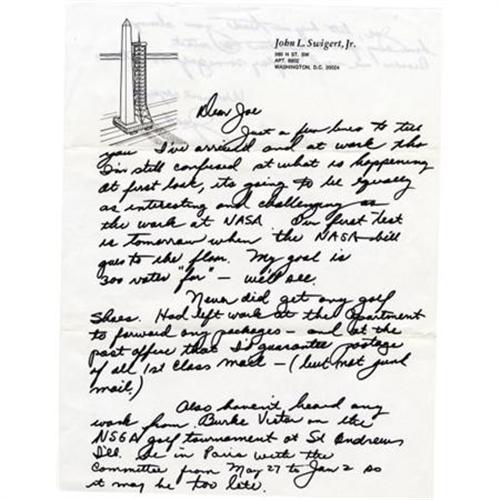 John L. Swigert, Jr.
WASHINGTON, D.C. 20024
Dear Joe
Just a few lines to tell
you I've arrived and at work tho
I'm still confused at what is happening
At first look, its going to be equally
as interesting and challenging as
the work at NASA. Our first test
is tomorrow when the NASA bill
goes to the floor. My goal is
300 votes "for" – we'll see.
Never did get any golf
shoes. Had left work at the apartment
to forward any packages – and at the
post office that I'd guarantee postage
of all 1st class mail – (but not junk
mail.)
Also haven't heard any
word from Burke on the
NSGA golf tournament at St Andrews
I'll be in Paris with the
Committee from May 27 to 2 so
it may be too late.